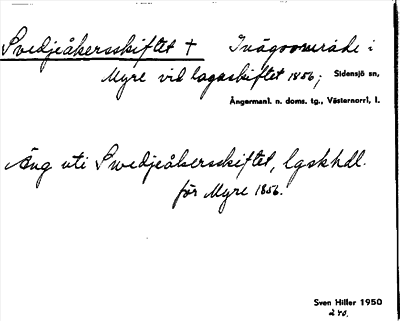 Svedjeåkersskiftet + Inägoområde i
Myre vid lagaskiftet 1856; Sidensjö sn,
Ångermanl. n. doms. tg., Västernorrl, l.
Äng uti Swedjeåkersskiftet, lgskhdl.
för Myre 1856.
Sven Hiller 1950
240.